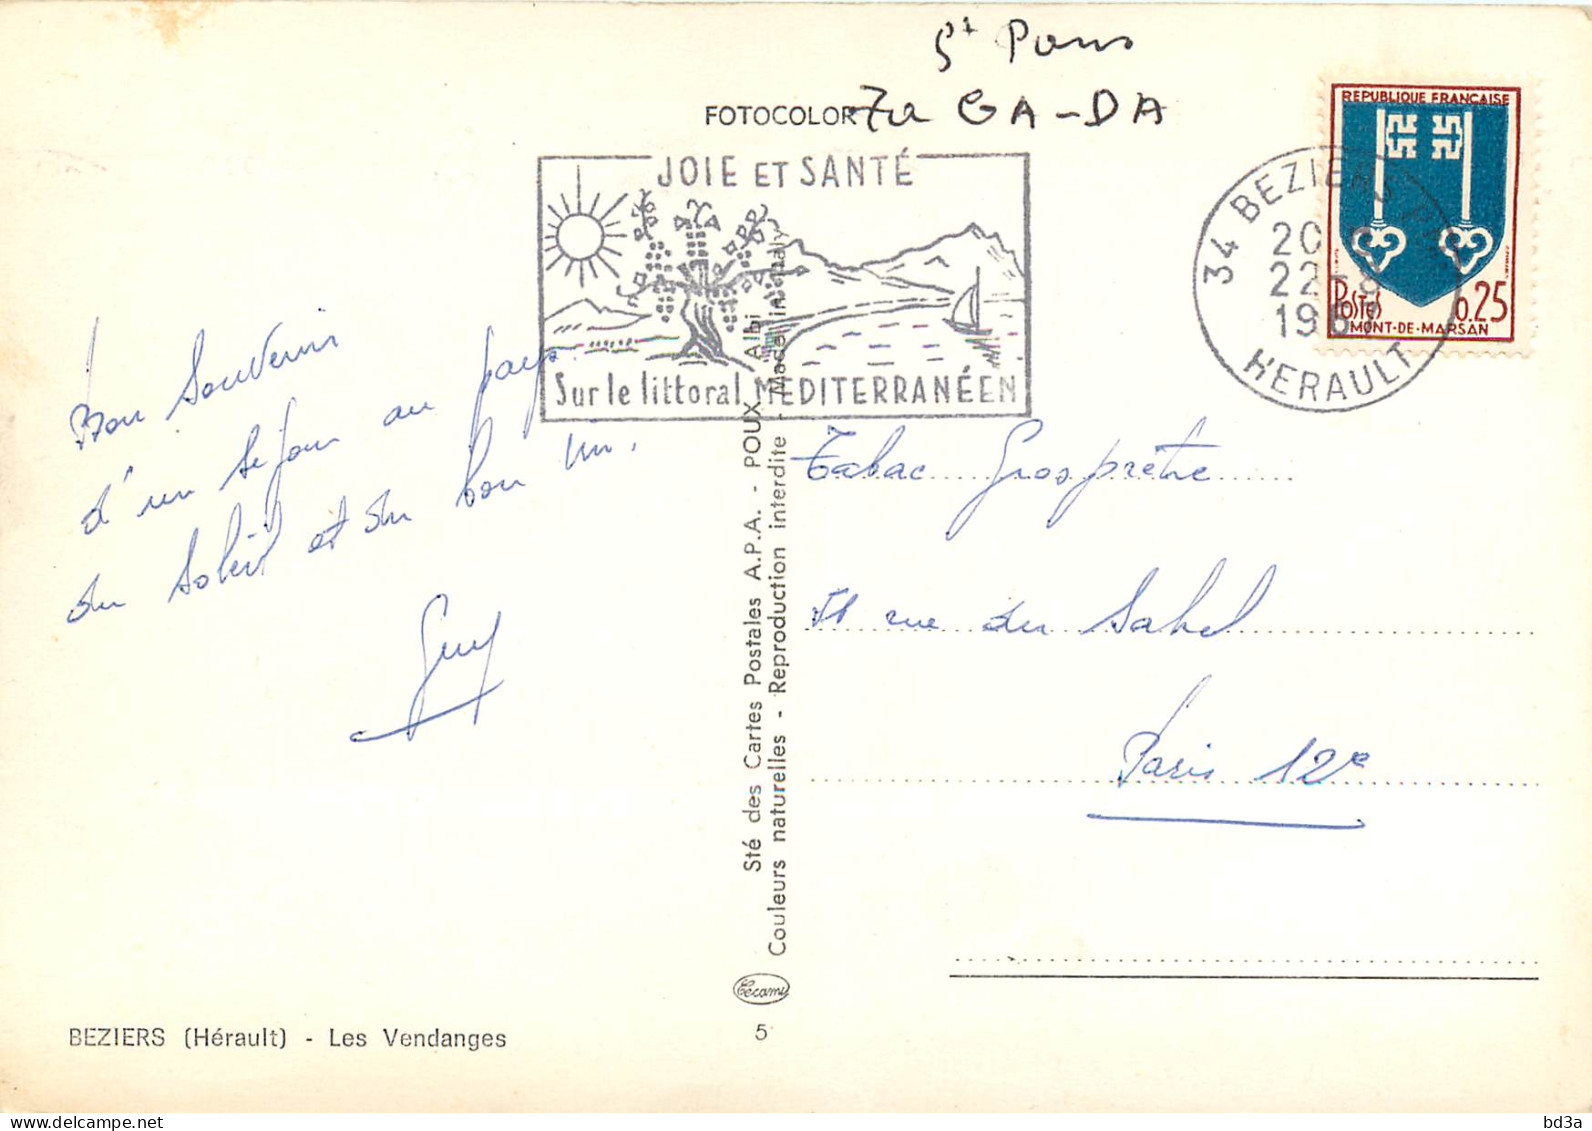 St Pons
FOTOCOLOR
GA-DA
JOIE ET SANTÉ
Sur le littoral MEDITERRANÉEN
34 BEZIERS
20
22
196
HERAULT
REPUBLIQUE FRANÇAISE
POSTES 0.25
MONT-DE-MARSAN
Bon Souvenir
d'un séjour au pays
du soleil et du bon vin.
Guy
Tabac Grosprêtre
rue du Sahel
Paris 12e
Sté des Cartes Postales A.P.A. - POUX Albi
Couleurs naturelles - Reproduction interdite - Made in Italy
Cecami
5
BEZIERS (Hérault) - Les Vendanges
bd3a